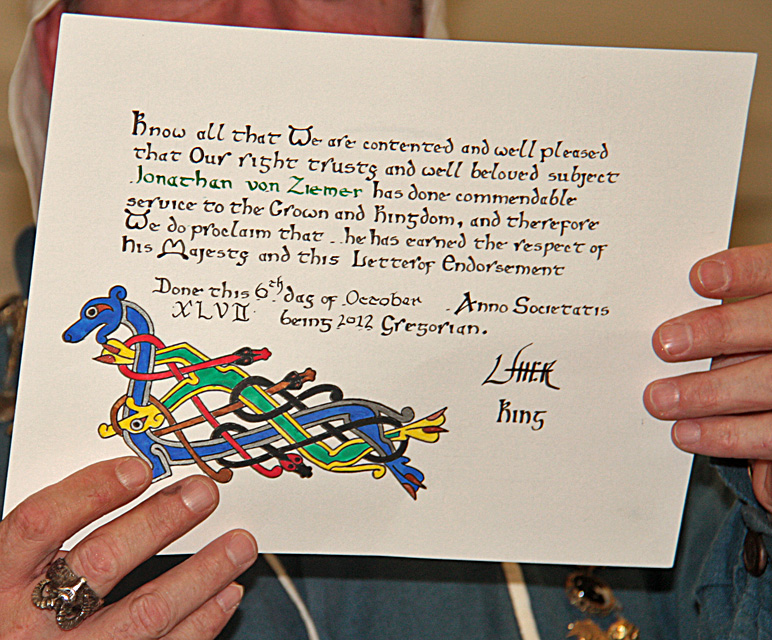 Know all that We are contented and well pleased
that Our right trusty and well beloved subject
Jonathan von Ziemer has done commendable
service to the Crown and Kingdom, and therefore
We do proclaim that ..he has earned the respect of
his Majesty and this Letter of Endorsement
Done this 6th day of October Anno Societatis
XLVII being 2012 Gregorian.
King